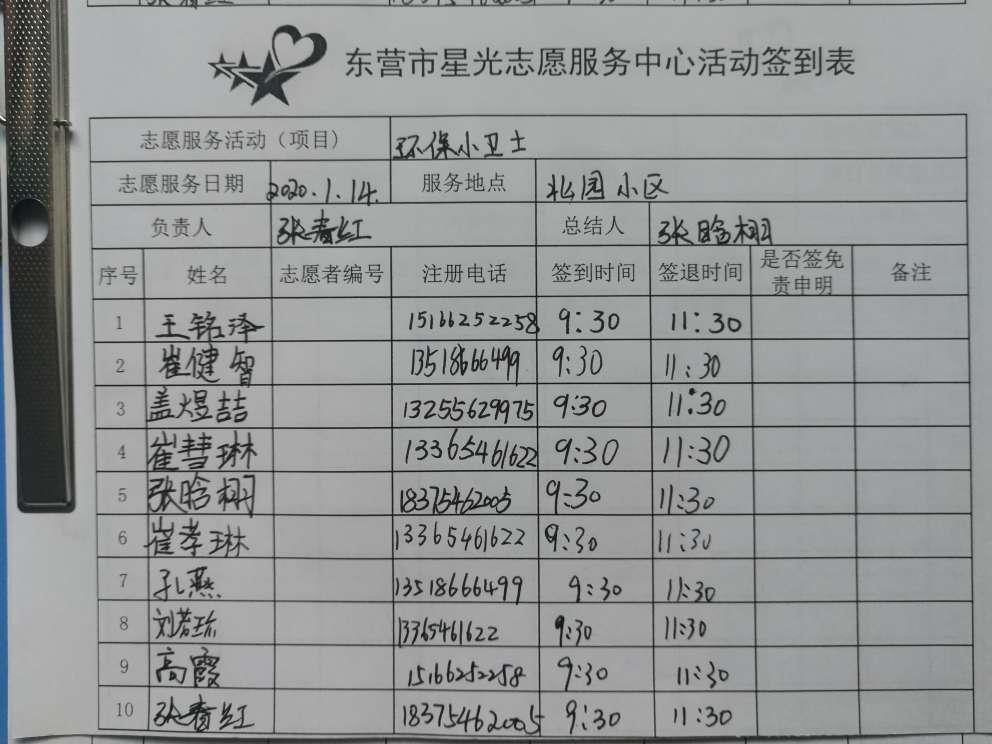 东营市星光志愿服务中心活动签到表
志愿服务活动（项目） 环保小卫士
志愿服务日期 2020.1.14. 服务地点 松园小区
负责人 张春红 总结人 张晗栩
序号 姓名 志愿者编号 注册电话 签到时间 签退时间 是否签免责申明 备注
1 王铭泽 15166252258 9:30 11:30
2 崔健智 13518666499 9:30 11:30
3 盖煜喆 13255629975 9:30 11:30
4 崔彗琳 13365461622 9:30 11:30
5 张晗栩 18375462005 9:30 11:30
6 崔孝琳 13365461622 9:30 11:30
7 孔燕 13518666499 9:30 11:30
8 刘若琉 13365461622 9:30 11:30
9 高霞 15166252258 9:30 11:30
10 张春红 18375462005 9:30 11:30